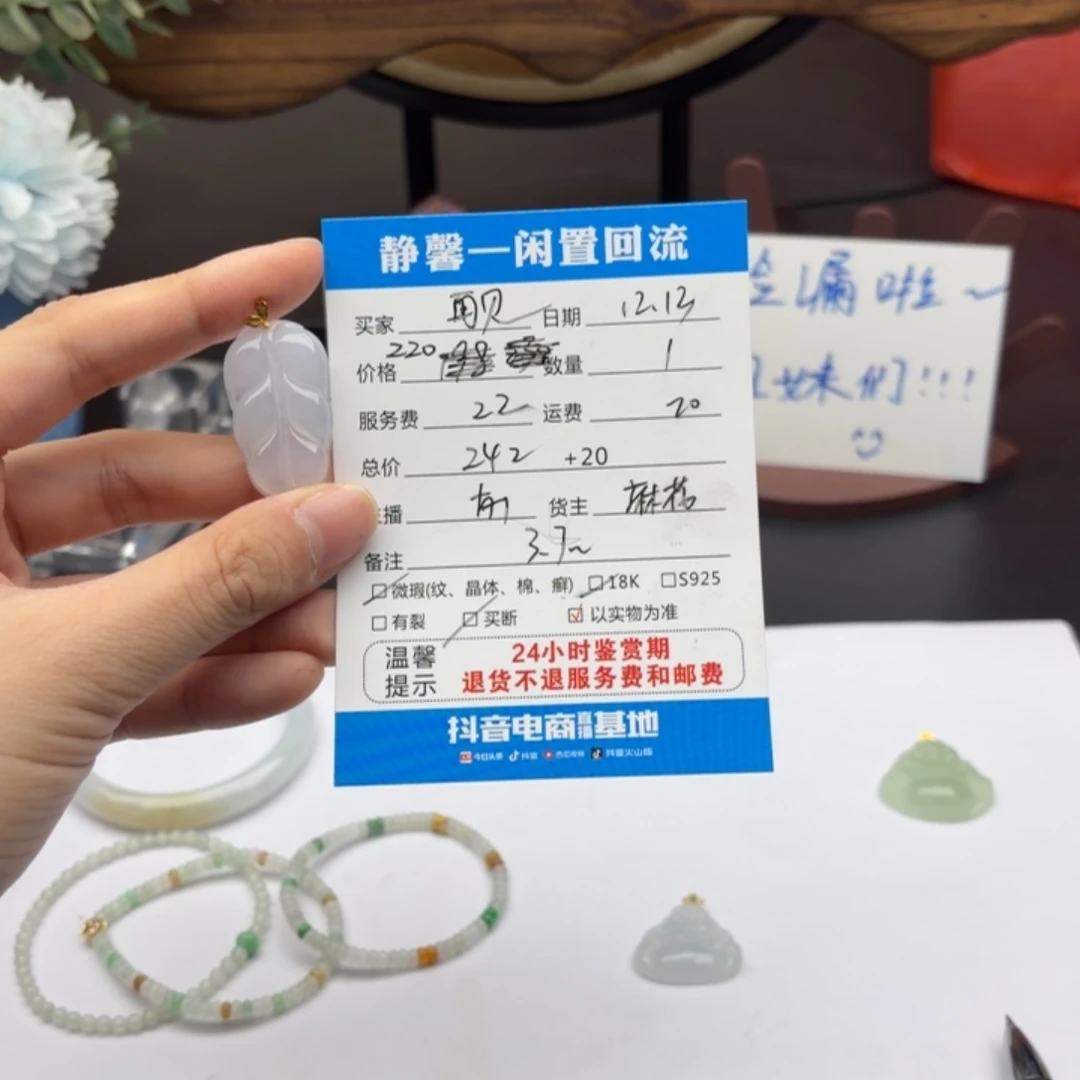 静馨一闲置回流
买家 日期 12.13
价格 220 数量 1
服务费 22 运费 20
总价 242 +20
播 货主
备注 3.7~
□微瑕(纹、晶体、棉、癣) □18K □S925
□有裂 □买断 ☑以实物为准
温馨提示
24小时鉴赏期
退货不退服务费和邮费
抖音电商直播基地
今日头条 抖音 西瓜视频 抖音火山版
漏啦~
妹们!!!